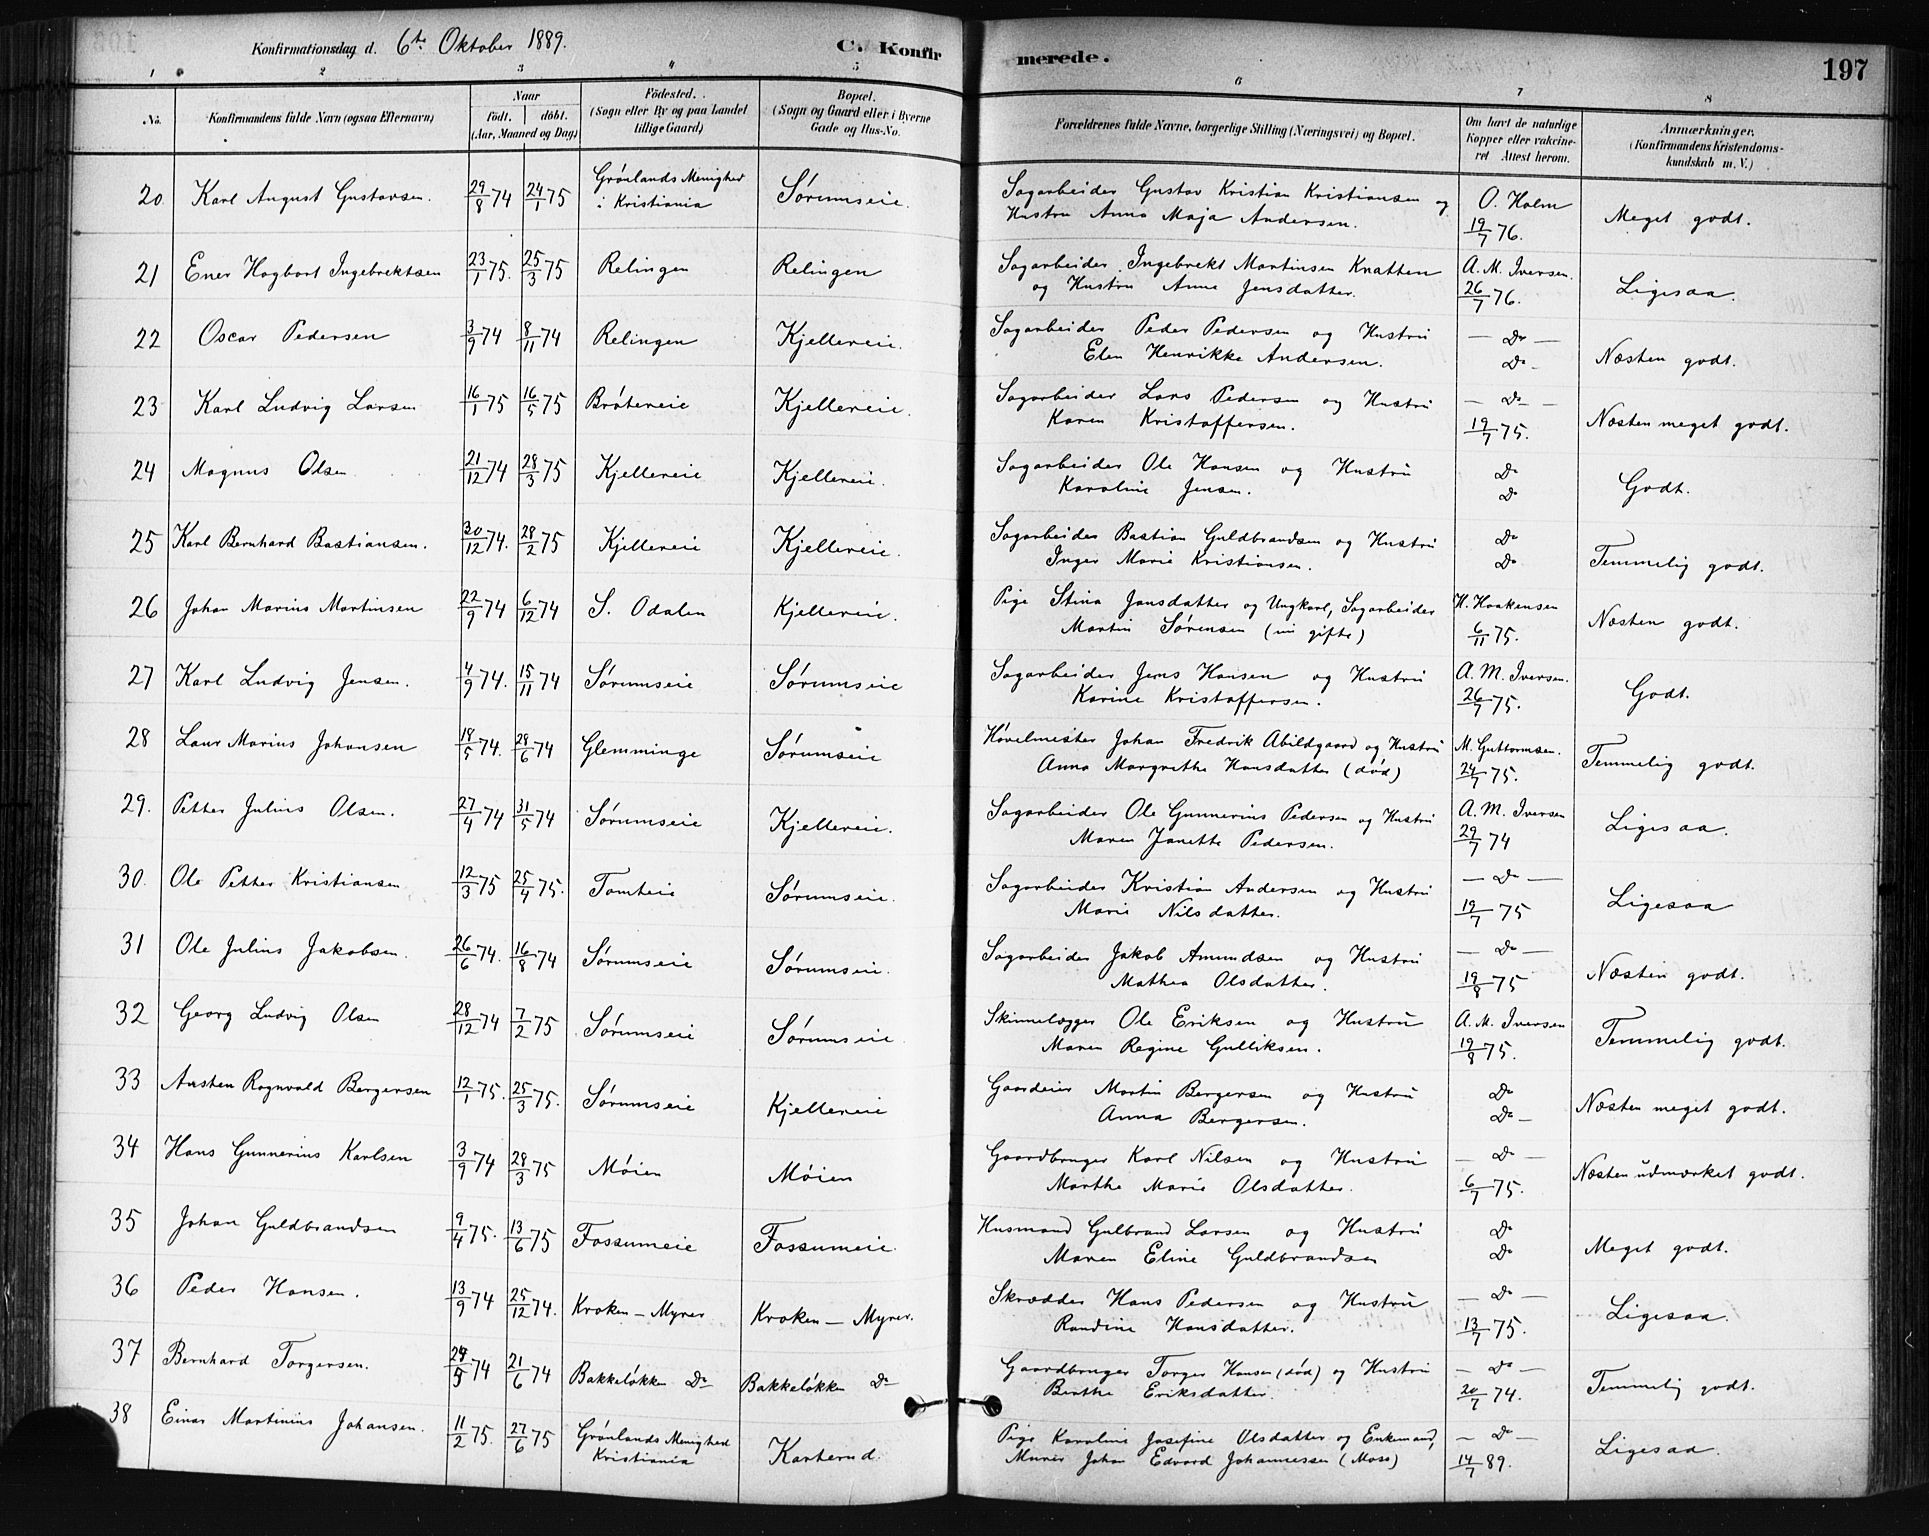 Konfirmationsdag d. 6te Oktober 1889.
C. Konfirmerede.
197
1 2 3 4 5 6 7 8
No. Konfirmandens fulde Navn (ogsaa Efternavn) Naar födt. döbt. (Aar, Maaned og Dag) Födested. (Sogn eller By og paa Landet tillige Gaard) Bopæl. (Sogn og Gaard eller i Byerne Gade og Hus-No. Forældrenes fulde Navne, borgerlige Stilling (Næringsvei) og Bopæl. Om havt de naturlige Kopper eller vakcineret Attest herom. Anmærkninger. (Konfirmandens Kristendomskundskab m. V.)
20 Karl August Gustavsen. 29/8 74 24/1 75 Grönlands Menighed i Kristiania Sørumseie. Sagarbeider Gustav Kristian Kristiansen og Hustru Anna Maja Andersen. O. Holm 19/7 76. Meget godt.
21 Ener Hagbart Ingebrektsen 23/1 75. 25/3 75 Relingen Relingen Sagarbeider Ingebrekt Martinsen Knatten og Hustru Anne Jensdatter. A. M. Iversen. 26/7 76. Ligesaa.
22 Oscar Pedersen 3/9 74 8/11 74 Relingen Kjellereie. Sagarbeider Peder Pedersen og Hustru Elen Henrikke Andersen. — Do — Do — Næsten godt.
23 Karl Ludvig Larsen 16/1 75 16/5 75 Bråtereie Kjellereie. Sagarbeider Lars Pedersen og Hustru Karen Kristoffersen. — Do — 19/7 75. Næsten meget godt.
24 Magnus Olsen 21/12 74 28/3 75 Kjellereie Kjellereie. Sagarbeider Ole Hansen og Hustru Karoline Jensen. Do Do Godt.
25 Karl Bernhard Bastiansen. 30/12 74. 28/2 75 Kjellereie Kjellereie. Sagarbeider Bastian Guldbrandsen og Hustru Inger Marie Kristiansen. Do Do Temmelig godt.
26 Johan Marius Martinsen 22/9 74 6/12 74 S. Odalen Kjellereie. Pige Stina Jansdatter og Ungkarl, Sagarbeider Martin Sørensen (nu gifte) H. Haakensen 6/11 75. Næsten godt.
27 Karl Ludvig Jensen. 4/9 74. 15/11 74 Sørumseie Sørumseie Sagarbeider Jens Hansen og Hustru Karine Kristoffersen. A. M. Iversen. 26/7 75. Godt.
28 Laur Marius Johansen 18/5 74. 28/6 74 Glemminge Sørumseie Høvelmester Johan Fredrik Abildgaard og Hustru Anna Margrethe Hansdatter (död) M. Guttormsen. 24/7 75. Temmelig godt.
29. Petter Julius Olsen. 27/4 74 31/5 74 Sørumseie Kjellereie. Sagarbeider Ole Gunnerius Pedersen og Hustru Maren Janette Pedersen. A. M. Iversen 29/7 74 Ligesaa.
30. Ole Petter Kristiansen 12/3 75 25/4 75. Tomteie Sørumseie. Sagarbeider Kristian Andersen og Hustru Marie Nilsdatter. — Do — 19/7 75 Ligesaa
31 Ole Julius Jakobsen. 26/6 74. 16/8 74 Sørumseie Sørumseie. Sagarbeider Jakob Amundsen og Hustru Mathea Olsdatter. — Do — 19/8 75 Næsten godt.
32 Georg Ludvig Olsen 28/12 74 7/2 75 Sørumseie Sørumseie. Skinnelægger Ole Eriksen og Hustru Maren Regine Gulliksen. A. M. Iversen 19/8 75. Temmelig godt.
33 Austen Ragnvald Bergersen 12/1 75. 25/3 75. Sørumseie Kjellereie Gaardeier Martin Bergersen og Hustru Anna Bergersen. Do Do — Næsten meget godt.
34 Hans Gunnerius Karlsen 3/9 74 28/3 75 Möien Möien Gaardbruger Karl Nilsen og Hustru Marthe Marie Olsdatter. — Do — 6/7 75. Næsten udmærket godt.
35 Johan Guldbrandsen 9/4 75. 13/6 75 Fossumeie Fossumeie. Husmand Gulbrand Larsen og Hustru Maren Eline Guldbrandsen Do Do Meget godt.
36 Peder Hansen. 13/9 74 25/12 74. Kroken — Myrer Kroken — Myrer. Skrædder Hans Pedersen og Hustru Randine Hansdatter. — Do — 13/7 75. Ligesaa.
37 Bernhard Torgersen. 24/5 74 21/6 74 Bakkeløkken Do Bakkeløkken Do Gaardbruger Torger Hansen (död) og Hustru Berthe Eriksdatter. — Do — 20/7 74. Temmelig godt.
38 Einar Martinius Johansen. 11/2 75. 27/6 75 Grönlands Menighed Kristiania Karterud. Pige Karoline Josefine Olsdatter og Enkemand, Murer Johan Edvard Johannessen (Moss) — Do — 14/7 89. Ligesaa.